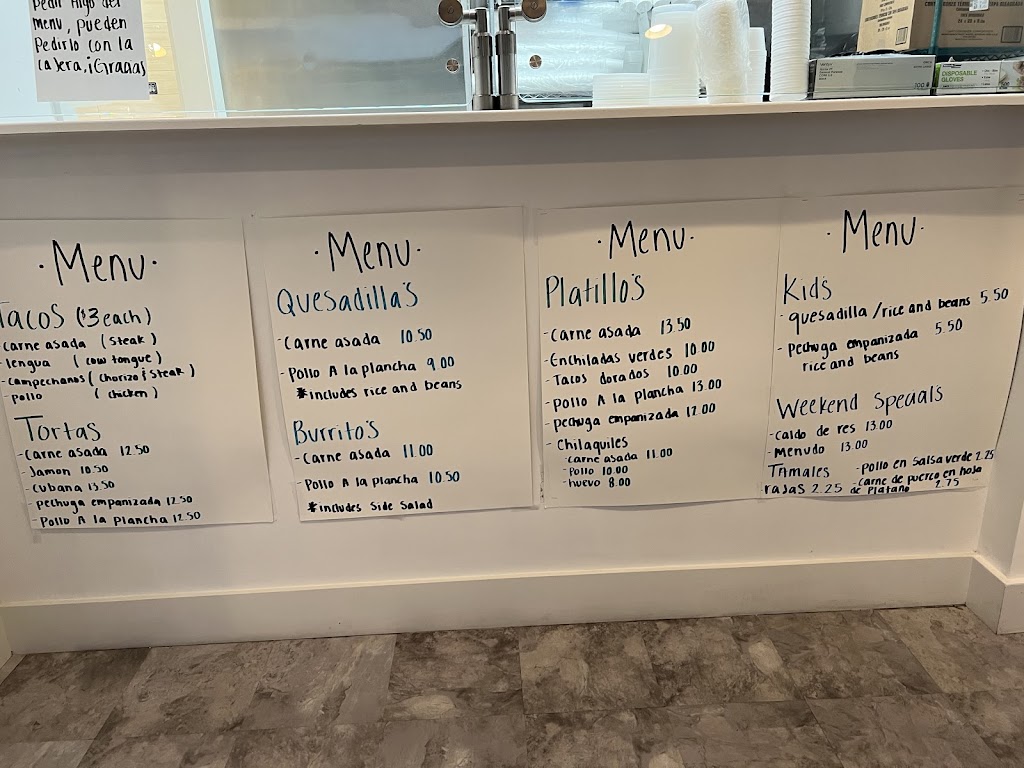 pedir Algo del
menu, pueden
Pedirlo con la
cajera, ¡Gracias
DISPOSABLE
GLOVES
·Menu·
Tacos ($3 each)
carne asada (steak)
-lengua (cow tongue)
-campechanos (chorizo i steak)
-pollo (chicken)
Tortas
-carne asada 12.50
-Jamon 10.50
-cubana 13.50
-pechuga empanizada 12.50
-Pollo A la plancha 12.50
·Menu·
Quesadilla's
-carne asada 10.50
-Pollo A la plancha 9.00
*includes rice and beans
Burrito's
-carne asada 11.00
-Pollo A la plancha 10.50
*includes Side Salad
·Menu·
Platillo's
-carne asada 13.50
-Enchiladas verdes 10.00
-Tacos dorados 10.00
-pollo A la plancha 13.00
-pechuga empanizada 12.00
-Chilaquiles
-carne asada 11.00
-Pollo 10.00
-huevo 8.00
·Menu·
Kid's
-quesadilla/rice and beans 5.50
-Pechuga empanizada 5.50
rice and beans
Weekend Specials
-Caldo de res 13.00
-Menudo 13.00
Tamales -Pollo en Salsa verde 2.25
rajas 2.25 -Carne de puerco en hoja
de Platano 2.75